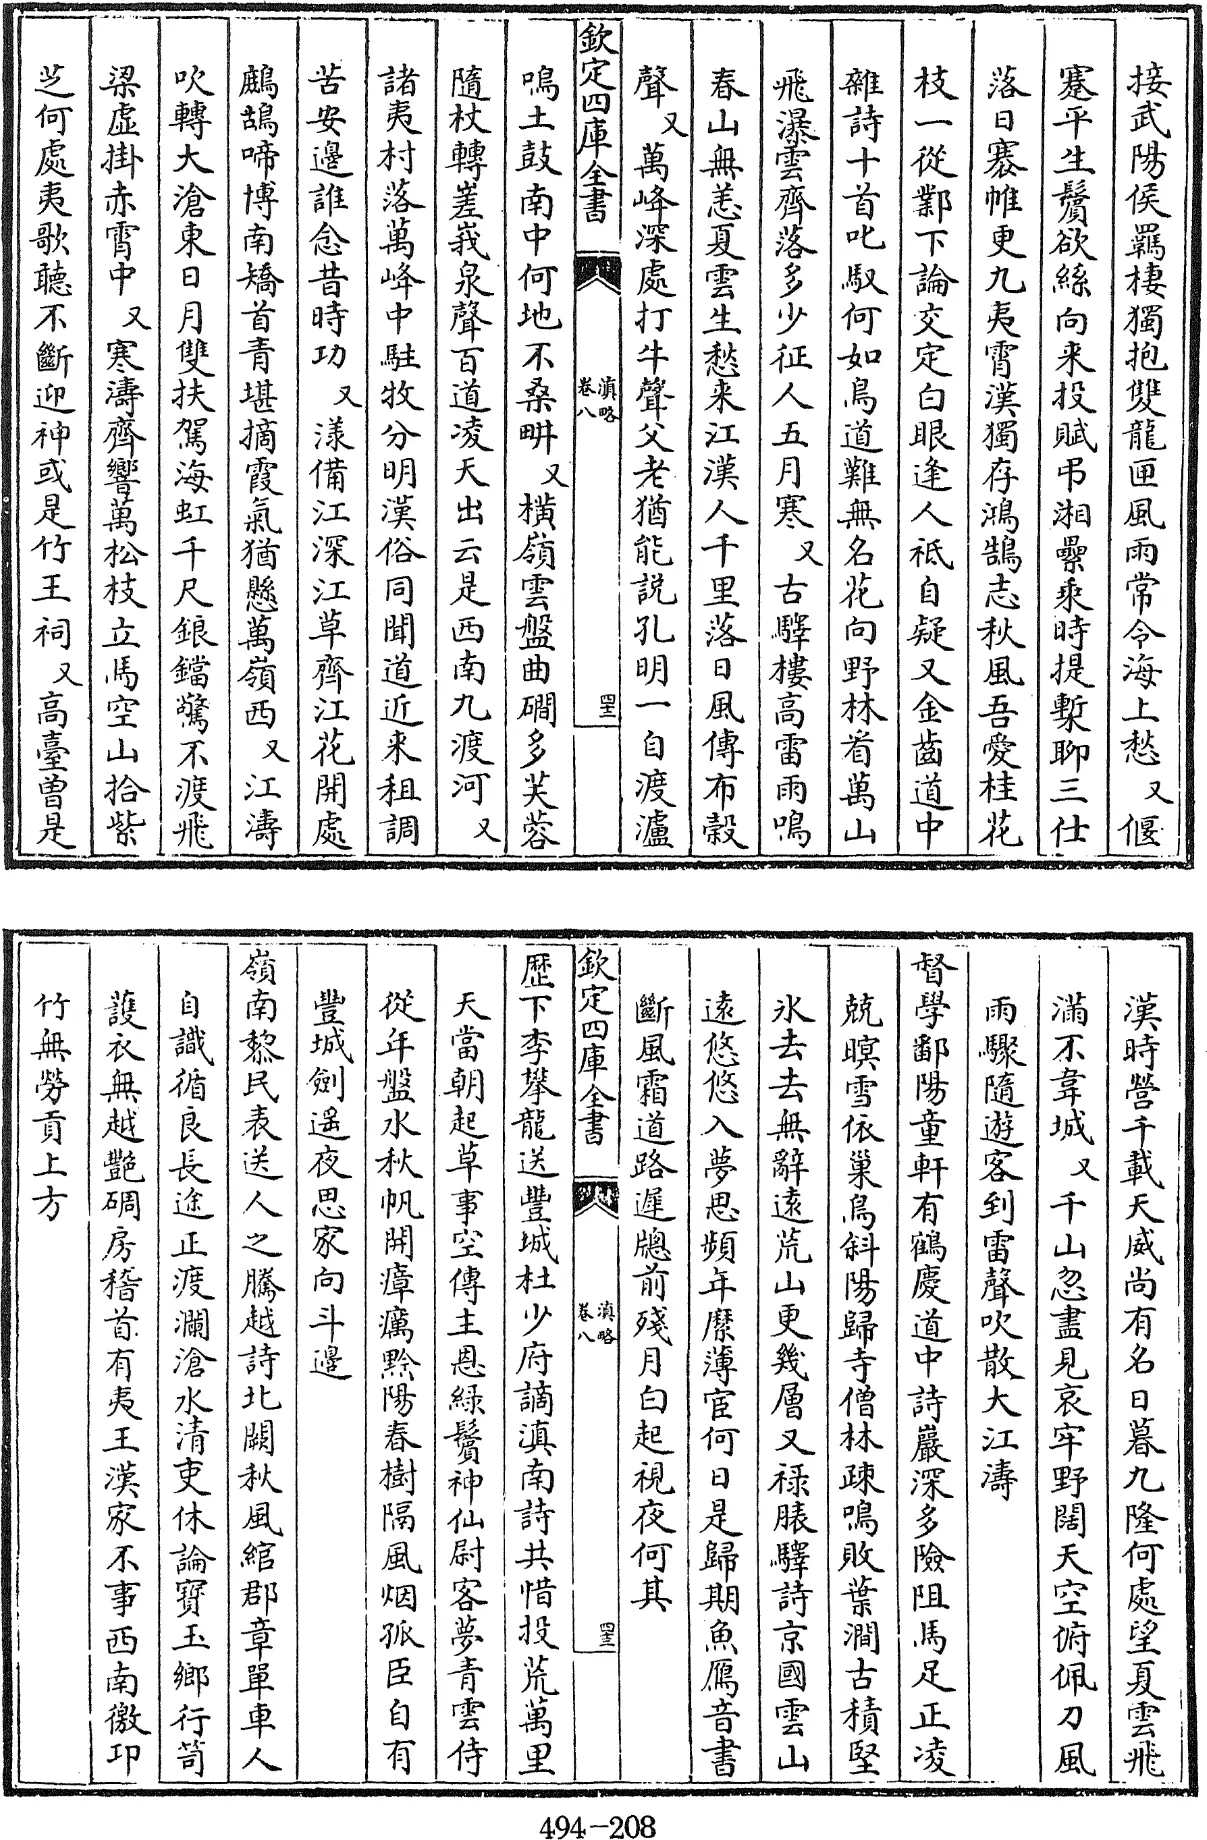 接武陽侯羈棲獨抱雙龍匣風雨常令海上愁　又　偃
蹇平生鬢欲絲向来投賦弔湘纍乘時提槧聊三仕
落日褰帷更九夷霄漢獨存鴻鵠志秋風吾愛桂花
枝一從鄴下論交定白眼逢人祗自疑又金齒道中
雜詩十首叱馭何如鳥道難無名花向野林看萬山
飛瀑雲齊落多少征人五月寒　又　古驛樓高雷雨鳴
春山無恙夏雲生愁来江漢人千里落日風傳布穀
聲　又　萬峰深處打牛聲父老猶能説孔明一自渡瀘
欽定四庫全書
滇略
卷八
四三
鳴土鼓南中何地不桑畊　又　橫嶺雲盤曲磵多芙蓉
隨杖轉嵳峩泉聲百道凌天出云是西南九渡河　又
諸夷村落萬峰中駐牧分明漢俗同聞道近来租調
苦安邊誰念昔時功　又　漾備江深江草齊江花開處
鷓鴣啼博南矯首青堪摘霞氣猶懸萬嶺西　又　江濤
吹轉大滄東日月雙扶駕海虹千尺鋃鐺驚不渡飛
梁虛掛赤霄中　又　寒濤齊響萬松枝立馬空山拾紫
芝何處夷歌聽不斷迎神或是竹王祠　又　高臺曾是
漢時營千載天威尚有名日暮九隆何處望夏雲飛
滿不韋城　又　千山忽盡見哀牢野闊天空俯佩刀風
雨驟隨遊客到雷聲吹散大江濤
督學鄱陽童軒有鶴慶道中詩巖深多險阻馬足正凌
兢暝雪依巢鳥斜陽歸寺僧林疎鳴敗葉澗古積堅
氷去去無辭遠荒山更幾層又祿脿驛詩京國雲山
遠悠悠入夢思頻年縻薄宦何日是歸期魚鴈音書
斷風霜道路遲牕前殘月白起視夜何其
欽定四庫全書
滇略
卷八
四三
歴下李攀龍送豐城杜少府謫滇南詩共惜投荒萬里
天當朝起草事空傳主恩綠鬢神仙尉客夢青雲侍
從年盤水秋帆開瘴癘黔陽春樹隔風烟孤臣自有
豐城劍遥夜思家向斗邊
嶺南黎民表送人之騰越詩北闕秋風綰郡章單車人
自識循良長途正渡瀾滄水清吏休論寶玉鄉行笥
護衣無越艷碉房稽首有夷王漢家不事西南徼卭
竹無勞貢上方
494-208